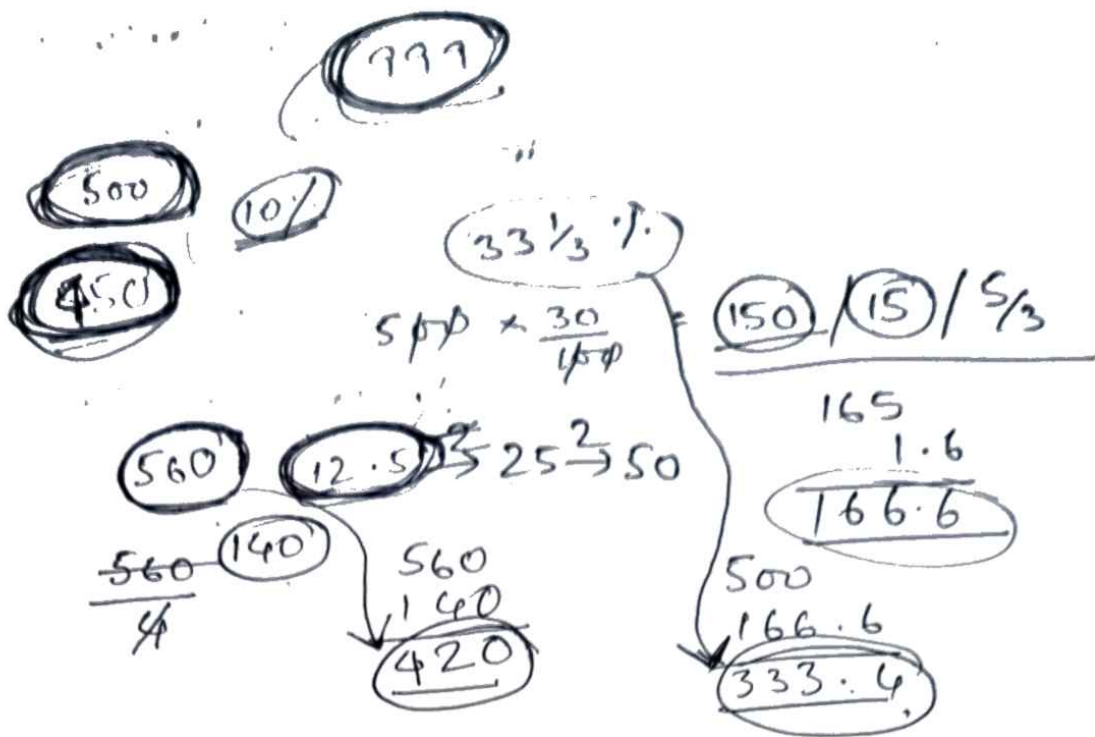 999
500 10%
450
33 1/3 %
500 × 30/100 = 150 / 15 / 5/3
165
1.6
166.6
560 12.5 2→ 25 2→ 50
560/4 140
560
140
420
500
166.6
333.4